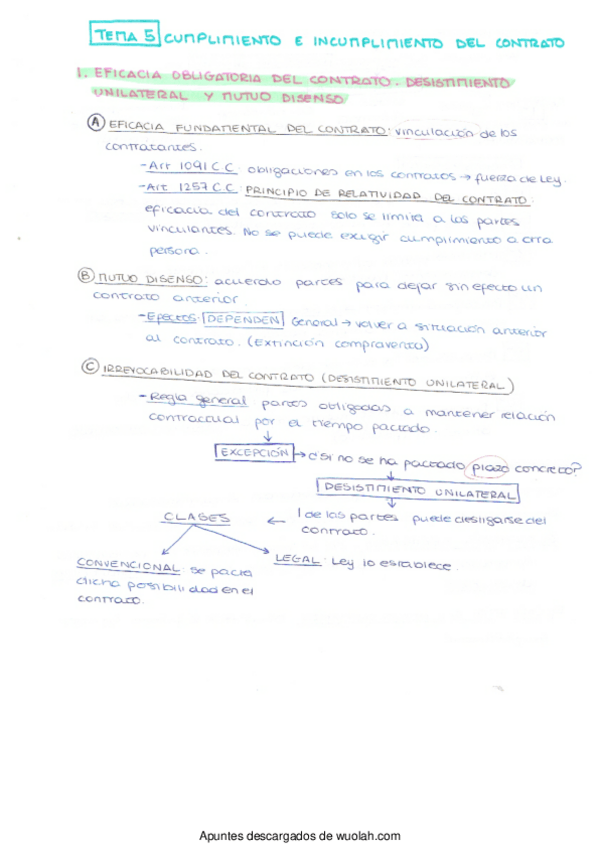 TEMA 5 CUMPLIMIENTO E INCUMPLIMIENTO DEL CONTRATO
1. EFICACIA OBLIGATORIA DEL CONTRATO. DESISTIMIENTO
UNILATERAL Y MUTUO DISENSO
A EFICACIA FUNDAMENTAL DEL CONTRATO: vinculación de los
contratantes.
- Art 1091 C.C. obligaciones en los contratos → fuerza de Ley.
- Art. 1257 C.C. PRINCIPIO DE RELATIVIDAD DEL CONTRATO:
eficacia del contrato solo se limita a las partes
vinculantes. No se puede exigir cumplimiento a otra
persona.
B MUTUO DISENSO: acuerdo partes para dejar sin efecto un
contrato anterior.
- Efectos: DEPENDEN General → volver a situación anterior
al contrato. (Extinción compraventa)
C IRREVOCABILIDAD DEL CONTRATO (DESISTIMIENTO UNILATERAL)
- Regla general partes obligadas a mantener relación
contractual por el tiempo pactado.
EXCEPCIÓN → ¿si no se ha pactado plazo concreto?
DESISTIMIENTO UNILATERAL
CLASES ← 1 de las partes puede desligarse del
contrato.
CONVENCIONAL: se pacta
dicha posibilidad en el
contrato.
LEGAL: Ley lo establece.
Apuntes descargados de wuolah.com